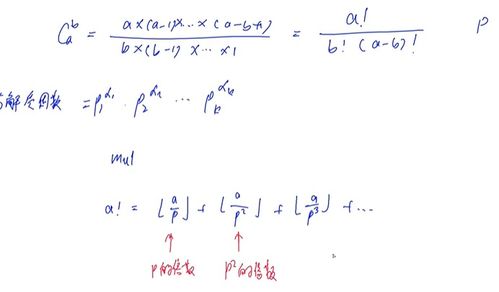 C_a^b = a×(a-1)×…×(a-b+1) / b×(b-1)×…×1 = a! / b!(a-b)! P
解质因数 = p₁^α₁ · p₂^α₂ … pₖ^αₖ
mul
a! = ⌊a/p⌋ + ⌊a/p²⌋ + ⌊a/p³⌋ + …
p的倍数 p²的倍数